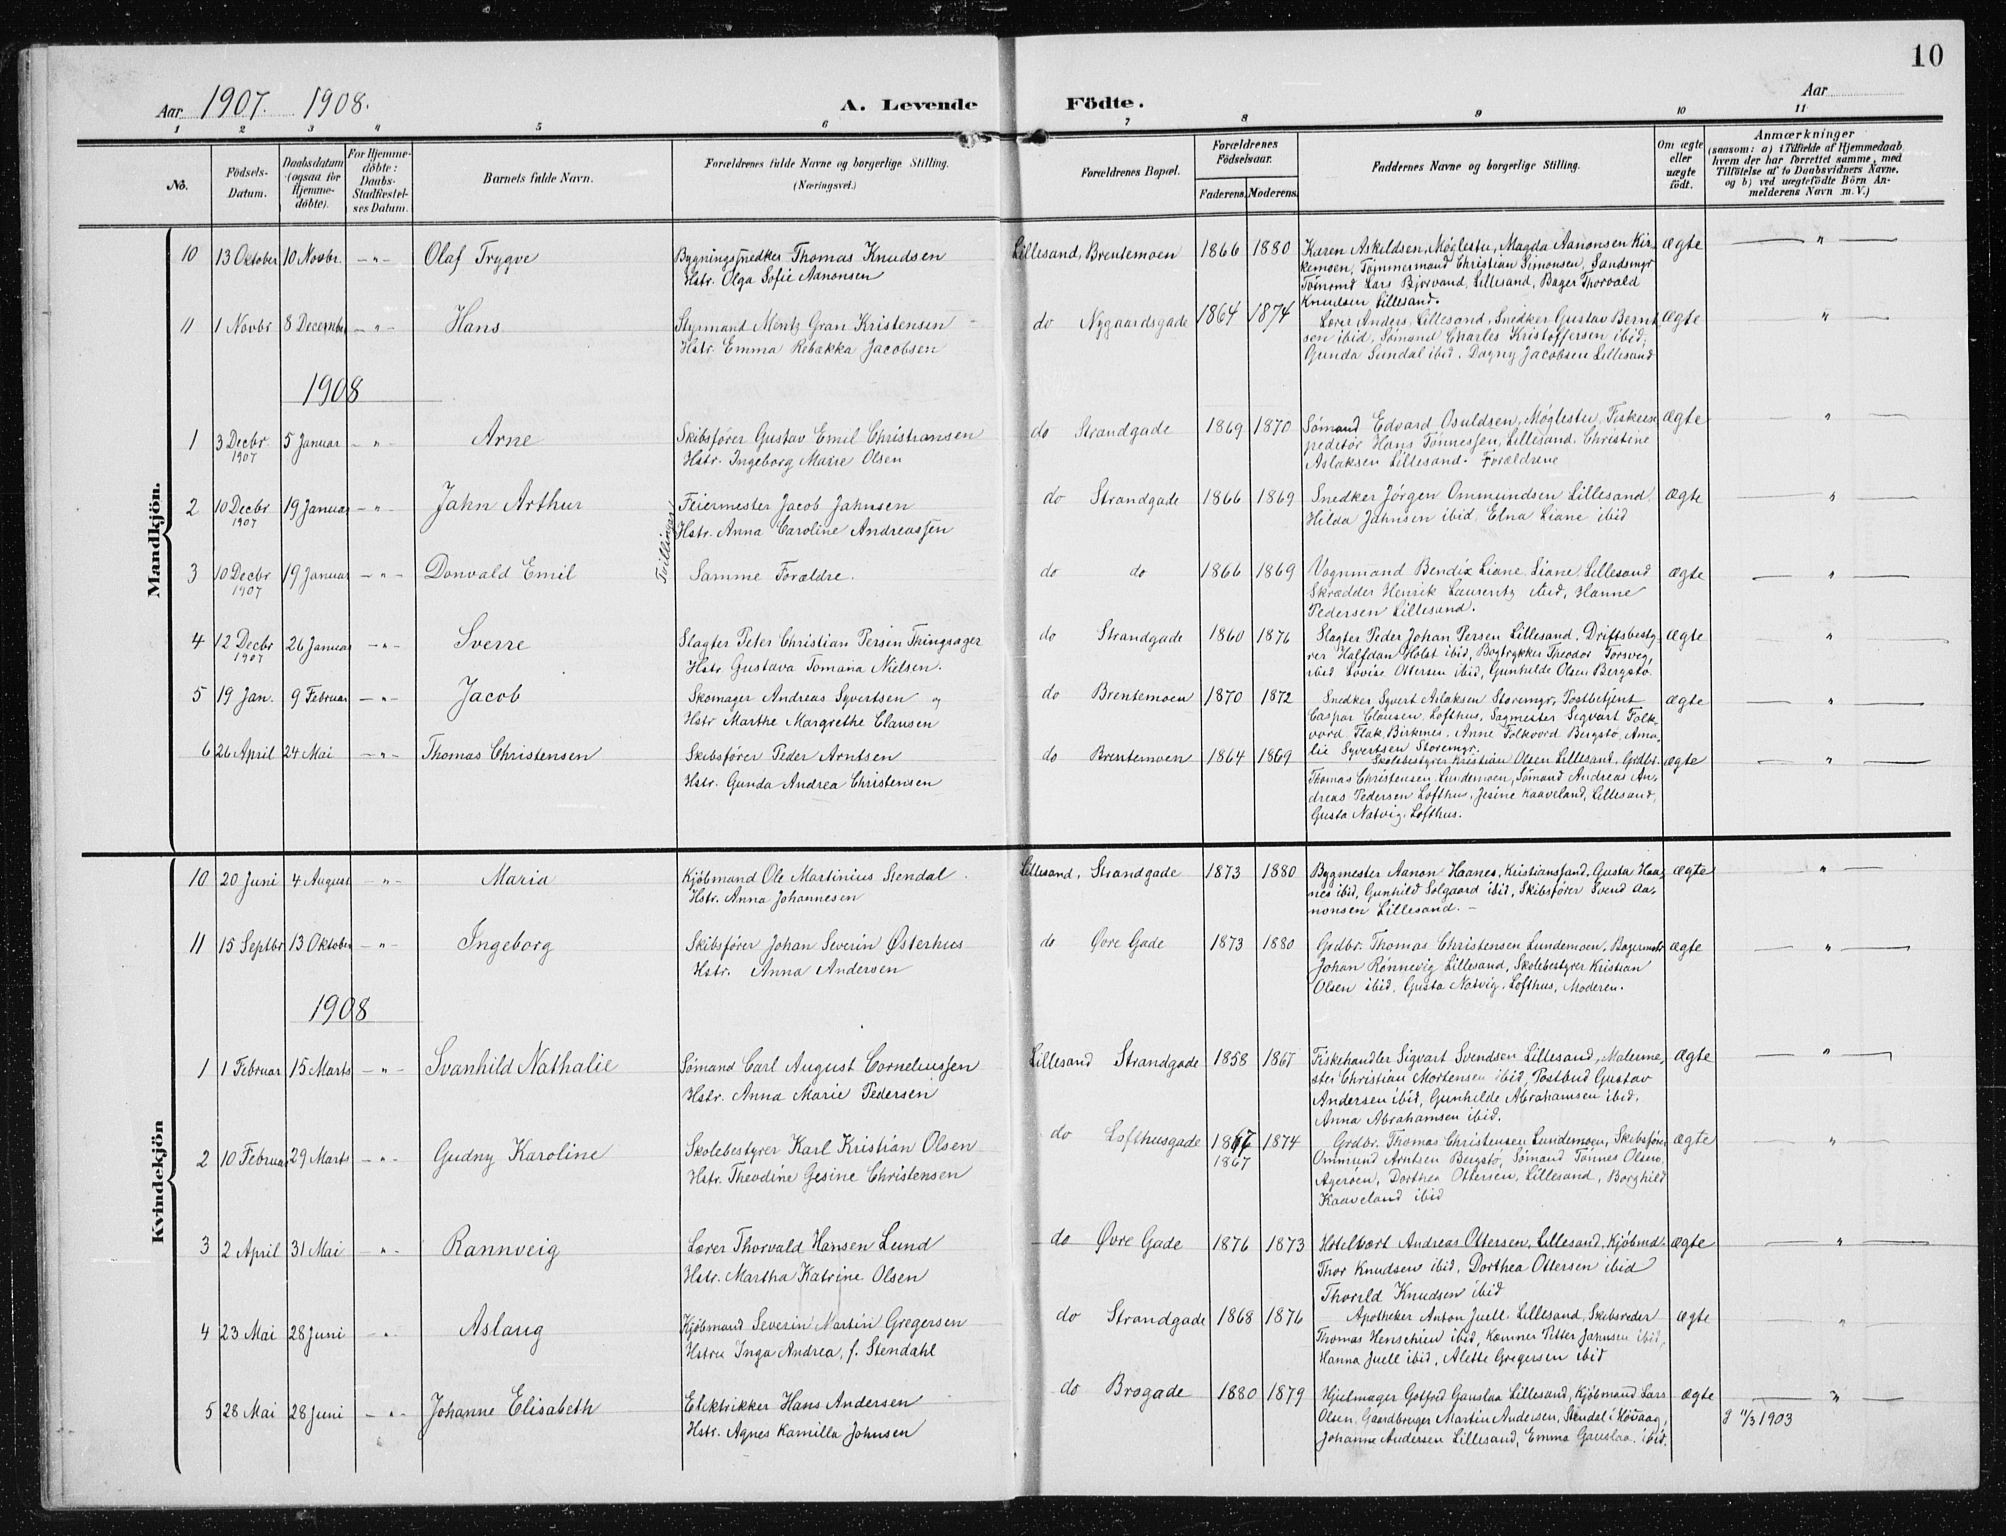 10
Aar 1907. 1908.
A. Levende Födte.
Aar
1 2 3 4 5 6 7 8 9 10 11
No.
Födsels-Datum.
Daabsdatum (ogsaa for Hjemme-döbte).
For Hjemme-döbte: Daabs-Stadfæstel-ses Datum.
Barnets fulde Navn.
Forældrenes fulde Navne og borgerlige Stilling. (Næringsvei.)
Forældrenes Bopæl.
Forældrenes Födselsaar.
Faderens. Moderens.
Faddernes Navne og borgerlige Stilling.
Om ægte eller uægte födt.
Anmærkninger
(saasom: a) i Tilfælde af Hjemmedaab, hvem der har forrettet samme, med Tilföielse af to Daabsvidners Navne, og b) ved uægtefödte Börn An-melderens Navn m. V.)
Mandkjön.
10 13 Oktober 10 Novbr. -"- Olaf Trygve
Bygningssnedker Thomas Knudsen
Hstr. Olga Sofie Aanonsen
Lillesand, Brentemoen 1866 1880
Karen Askildsen, Møglestu, Magda Aanonsen Kir-
kemoen, Tømmermand Christian Simonsen, Sandsmyr
Tømrmd Lars Bjorvand, Lillesand, Bager Thorvald
Knudsen Lillesand.
ægte — " —
11 1 Novbr 8 December -"- Hans
Styrmand Mentz Gran Kristensen
Hstr. Emma Rebekka Jacobsen
do Nygaardsgade 1864 1874
Lærer Anders, Lillesand, Snedker Gustav Bernt
sen ibid, Sømand Charles Kristoffersen ibid,
Gunda Sundal ibid. Dagny Jacobsen Lillesand
ægte "
1908
1 3 Decbr 1907 5 Januar -"- Arne
Skibsfører Gustav Emil Christiansen
Hstr. Ingeborg Marie Olsen
do Strandgade 1869 1870
Sømand Edvard Osuldsen, Møglestu, Fiskeex
peditør Hans Tønnessen, Lillesand. Christine
Aslaksen Lillesand. Forældrene
ægte — " —
2 10 Decbr 1907 19 Januar -"- Jahn Arthur
Tvillinger
Feiermester Jacob Jahnsen
Hstr. Anna Caroline Andreassen
do Strandgade 1866 1869
Snedker Jørgen Ommundsen Lillesand
Hilda Jahnsen ibid, Elna Liane ibid
ægte — " —
3 10 Decbr 1907 19 Januar -"- Donvald Emil
Samme Forældre.
do do 1866 1869
Vognmand Bendix Liane, Liane, Lillesand
Skrædder Henrik Laurentz ibid, Hanne
Pedersen Lillesand.
ægte — " —
4 12 Decbr 1907 26 Januar -"- Sverre
Slagter Peter Christian Persen Thingsager
Hstr. Gustava Tomana Nielsen.
do Strandgade 1860 1876
Slagter Peder Johan Persen Lillesand. Driftsbesty-
rer Halfdan Holst ibid, Bogtrykker Theodor Forsveg,
ibid Lovise Ottersen ibid, Gunhilde Olsen Bergstø.
ægte — " —
5 19 Jan. 9 Februar -"- Jacob
Skomager Andreas Syvertsen og
Hstr Marthe Margrethe Clausen
do Brentemoen 1870 1872
Snedker Syvert Aslaksen Storemyr, Postbetjent
Caspar Clausen, Lofthus, Sagmester Sigvart Folk-
vord Flak, Birkenes. Anne Folkvord Bergstø, Ama-
lie Syvertsen Storemyr.
ægte — " —
6 26 April 24 Mai -"- Thomas Christensen
Skibsfører Peder Arntsen
Hstr. Gunda Andrea Christensen
do Brentemoen 1864 1869
Skolebestyrer Kristian Olsen Lillesand, Grdbr.
Thomas Christensen Lundemoen, Sømand Andreas An-
dreas Pedersen Lofthus, Jesine Kaaveland, Lillesand,
Gusta Natvig, Lofthus.
ægte — " —
Kvindekjön
10 20 Juni 4 August -"- Maria
Kjøbmand Ole Martinius Stendal.
Hstr. Anna Johannesen
Lillesand, Strandgade 1873 1880
Bygmester Aanon Haanes, Kristiansand, Gusta Haa-
nes ibid, Gunhild Solgaard ibid, Skibsfører Svend Aa-
nonsen Lillesand. -
ægte " —
11 15 Septbr 13 Oktober -"- Ingeborg
Skibsfører Johan Severin Østerhus
Hstr. Anna Andersen
do Øvre Gade 1873 1880
Grdbr. Thomas Christensen Lundemoen, Bagermstr
Johan Rønnevig Lillesand, Skolebestyrer Kristian
Olsen ibid, Gusta Natvig, Lofthus, Moderen.
ægte — " —
1908
1 1 Februar 15 Marts -"- Svanhild Nathalie
Sømand Carl August Corneliussen
Hstr. Anna Marie Pedersen
Lillesand Strandgade 1858 1867
Fiskehandler Sigvart Svendsen Lillesand, Malerme-
ster Christian Mortensen ibid, Postbud Gustav
Andersen ibid, Gunhilde Abrahamsen ibid,
Anna Abrahamsen ibid.
ægte — " —
2 10 Februar 29 Marts -"- Gudny Karoline
Skolebestyrer Karl Kristian Olsen
Hstr. Theodine Gesine Christensen
do Lofthusgade 1867 1867 1874
Grdbr. Thomas Christensen Lundemoen, Skibsfører
Ommund Arntsen Bergstø, Sømand Tønnes Olsen,
Agerøen, Dorthea Ottersen, Lillesand, Borghild
Kaaveland ibid
ægte — " —
3 2 April 31 Mai -"- Rannveig
Lærer Thorvald Hansen Lund
Hstr. Martha Katrine Olsen
do Øvre Gade 1876 1873
Hotelvært Andreas Ottersen, Lillesand, Kjøbmd.
Thor Knudsen ibid, Dorthea Ottersen ibid
Thorild Knudsen ibid
ægte — " —
4 23 Mai 28 Juni -"- Aslaug
Kjøbmand Severin Martin Gregersen
Hstru Inga Andrea, f. Stendahl
do Strandgade 1868 1876
Apotheker Anton Juell, Lillesand, Skibsreder
Thomas Henschien ibid, Kæmner Petter Jahnsen ibid,
Hanna Juell ibid, Alette Gregersen ibid
ægte "
5 28 Mai 28 Juni -"- Johanne Elisabeth
Elektrikker Hans Andersen
Hstr. Agnes Kamilla Johnsen
do Brogade 1880 1879
Hjulmager Gotfred Gauslaa Lillesand, Kjøbmand Lars
Olsen, Gaardbruger Martin Andersen, Stendal i Høvaag,
Johanne Andersen Lillesand, Emma Gauslaa, ibid.
ægte — " —
g 11/3 1903